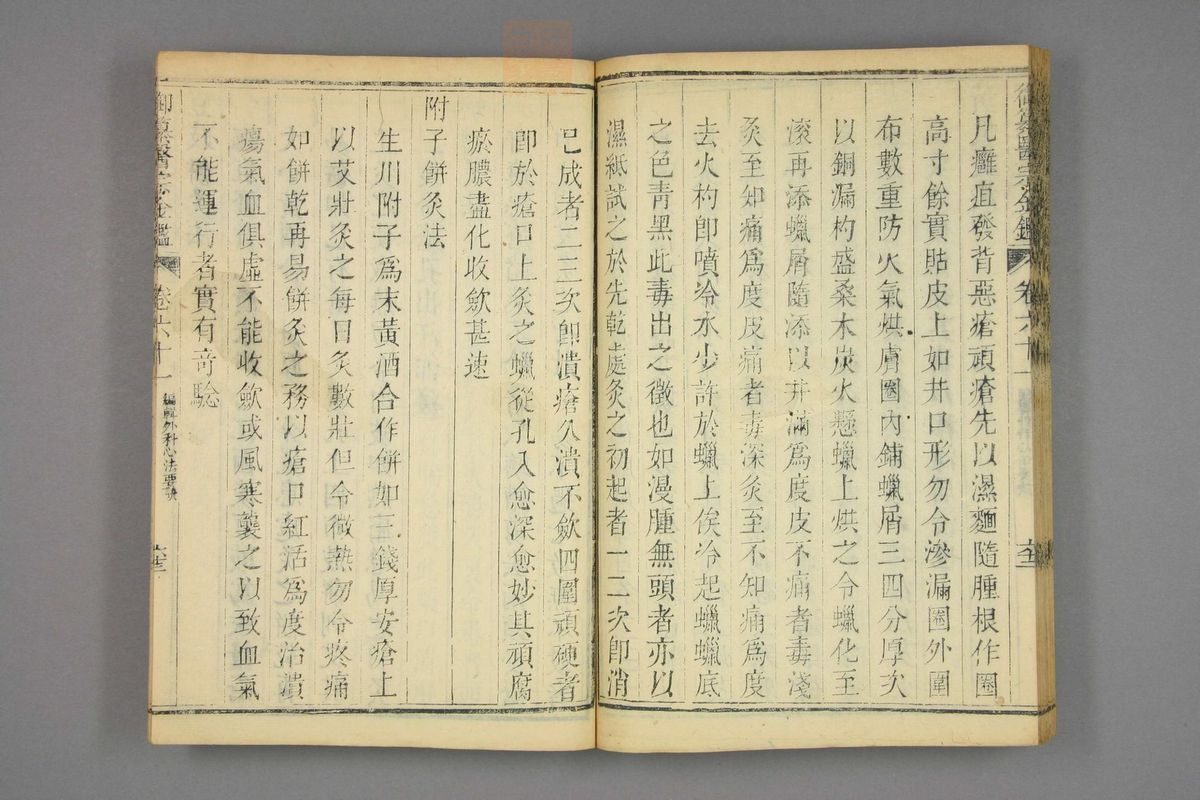 御纂醫宗金鑑 卷六十一
凡癰疽發背惡瘡頑瘡先以濕麵隨腫根作圈
高寸餘實貼皮上如井口形勿令滲漏圈外圍
布數重防火氣烘膚圈內鋪蠟屑三四分厚次
以銅漏杓盛桑木炭火懸蠟上烘之令蠟化至
滾再添蠟屑隨添以井滿為度皮不痛者毒淺
灸至知痛為度皮痛者毒深灸至不知痛為度
去火杓卽噴冷水少許於蠟上俟冷起蠟蠟底
之色青黑此毒出之徵也如漫腫無頭者亦以
濕紙試之於先乾處灸之初起者一二次卽消
已成者二三次卽潰瘡久潰不斂四圍頑硬者
卽於瘡口上灸之蠟從孔入愈深愈妙其頑腐
瘀膿盡化收斂甚速
附子餅灸法
生川附子為末黃酒合作餅如三錢厚安瘡上
以艾壯灸之每日灸數壯但令微熱勿令疼痛
如餅乾再易餅灸之務以瘡口紅活為度治潰
瘍氣血俱虛不能收斂或風寒襲之以致血氣
不能運行者實有奇驗
御纂醫宗金鑑 卷六十一 編輯外科心法要訣